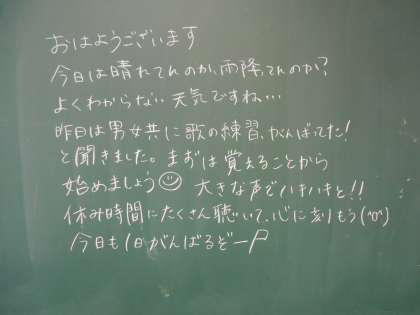 おはようございます
今日は晴れてんのか、雨降ってんのか?
よくわからない天気ですね…
昨日は男女共に歌の練習、がんばってた!
と聞きました。まずは覚えることから
始めましょう☺ 大きな声でハキハキと!!
休み時間にたくさん聴いて、心に刻もう(^o^)
今日も1日がんばるぞー